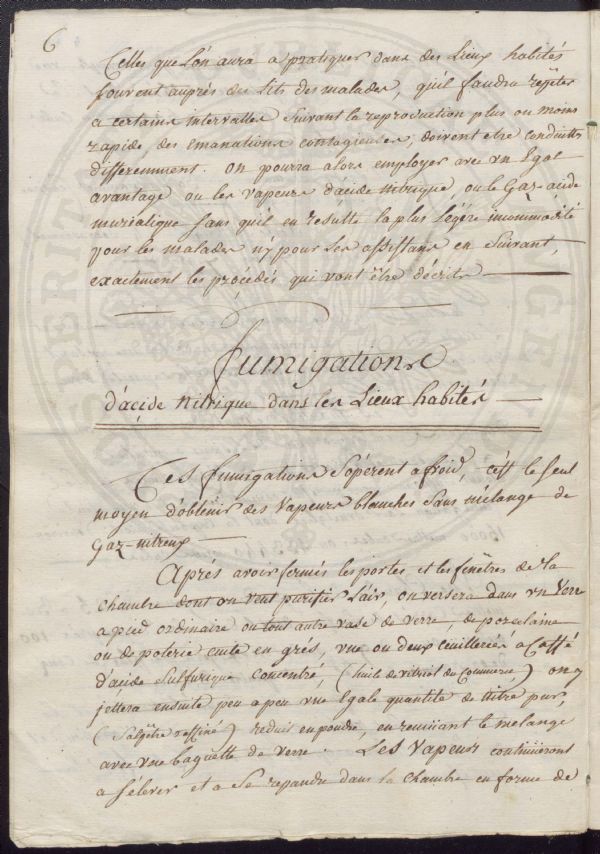 6
Celles que l'on aura a pratiquer dans des Lieux habités
souvent auprés des lits des malades, qu'il faudra repéter
a certains intervalles suivant la reproduction plus ou moins
rapide des émanations contagieuses, doivent etre conduittes
différemment. on pourra alors employer avec un Egal
avantage ou les vapeurs d'acide nitrique, ou le Gaz acide
muriatique sans qu'il en résulte la plus légére incommodité
pour les malades n'y pour les assistans en suivant,
exactement les procédés qui vont être décrits
Fumigations
d'acide nitrique dans les Lieux habités
Ces fumigations s'opérent a froid, c'est le seul
moyen d'obtenir des vapeurs blanches sans mélange de
Gaz-nitreux
Aprés avoir fermés les portes et les fenêtres de la
chambre dont on veut purifier l'air, on versera dans un Verre
a pied ordinaire ou tout autre vase de verre, de porcelaine
ou de poterie cuite en grés, une ou deux cuillerées a Caffé
d'acide sulfurique concentré, (huile de vitriol du Commerce,) on y
jettera ensuite peu a peu une Egale quantité de nitre pur,
(salpêtre raffiné) reduit en poudre, en remuant le mélange
avec une baguette de verre. Les Vapeurs continueront
a s'élever et a se repandre dans la chambre en forme de